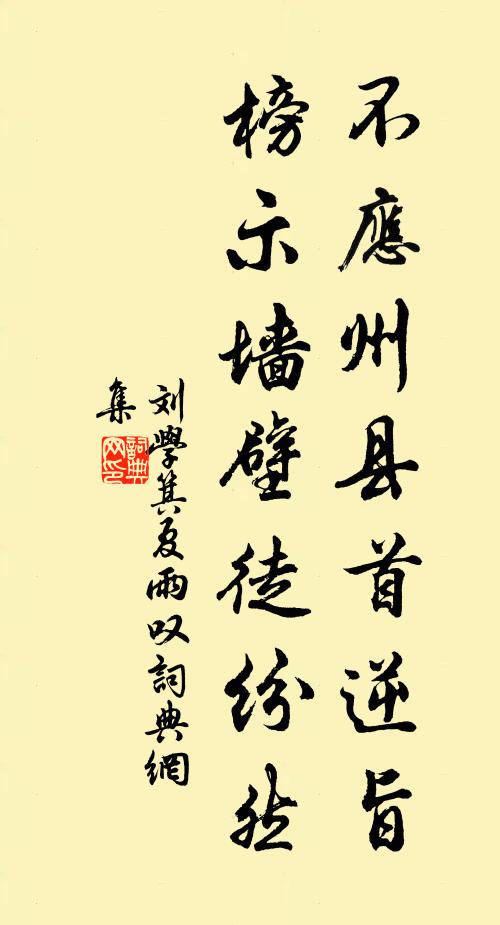 不應州县首逆旨
榜示墙壁徒纷然
刘學箕夏雨叹詞典網
集
詞典网印